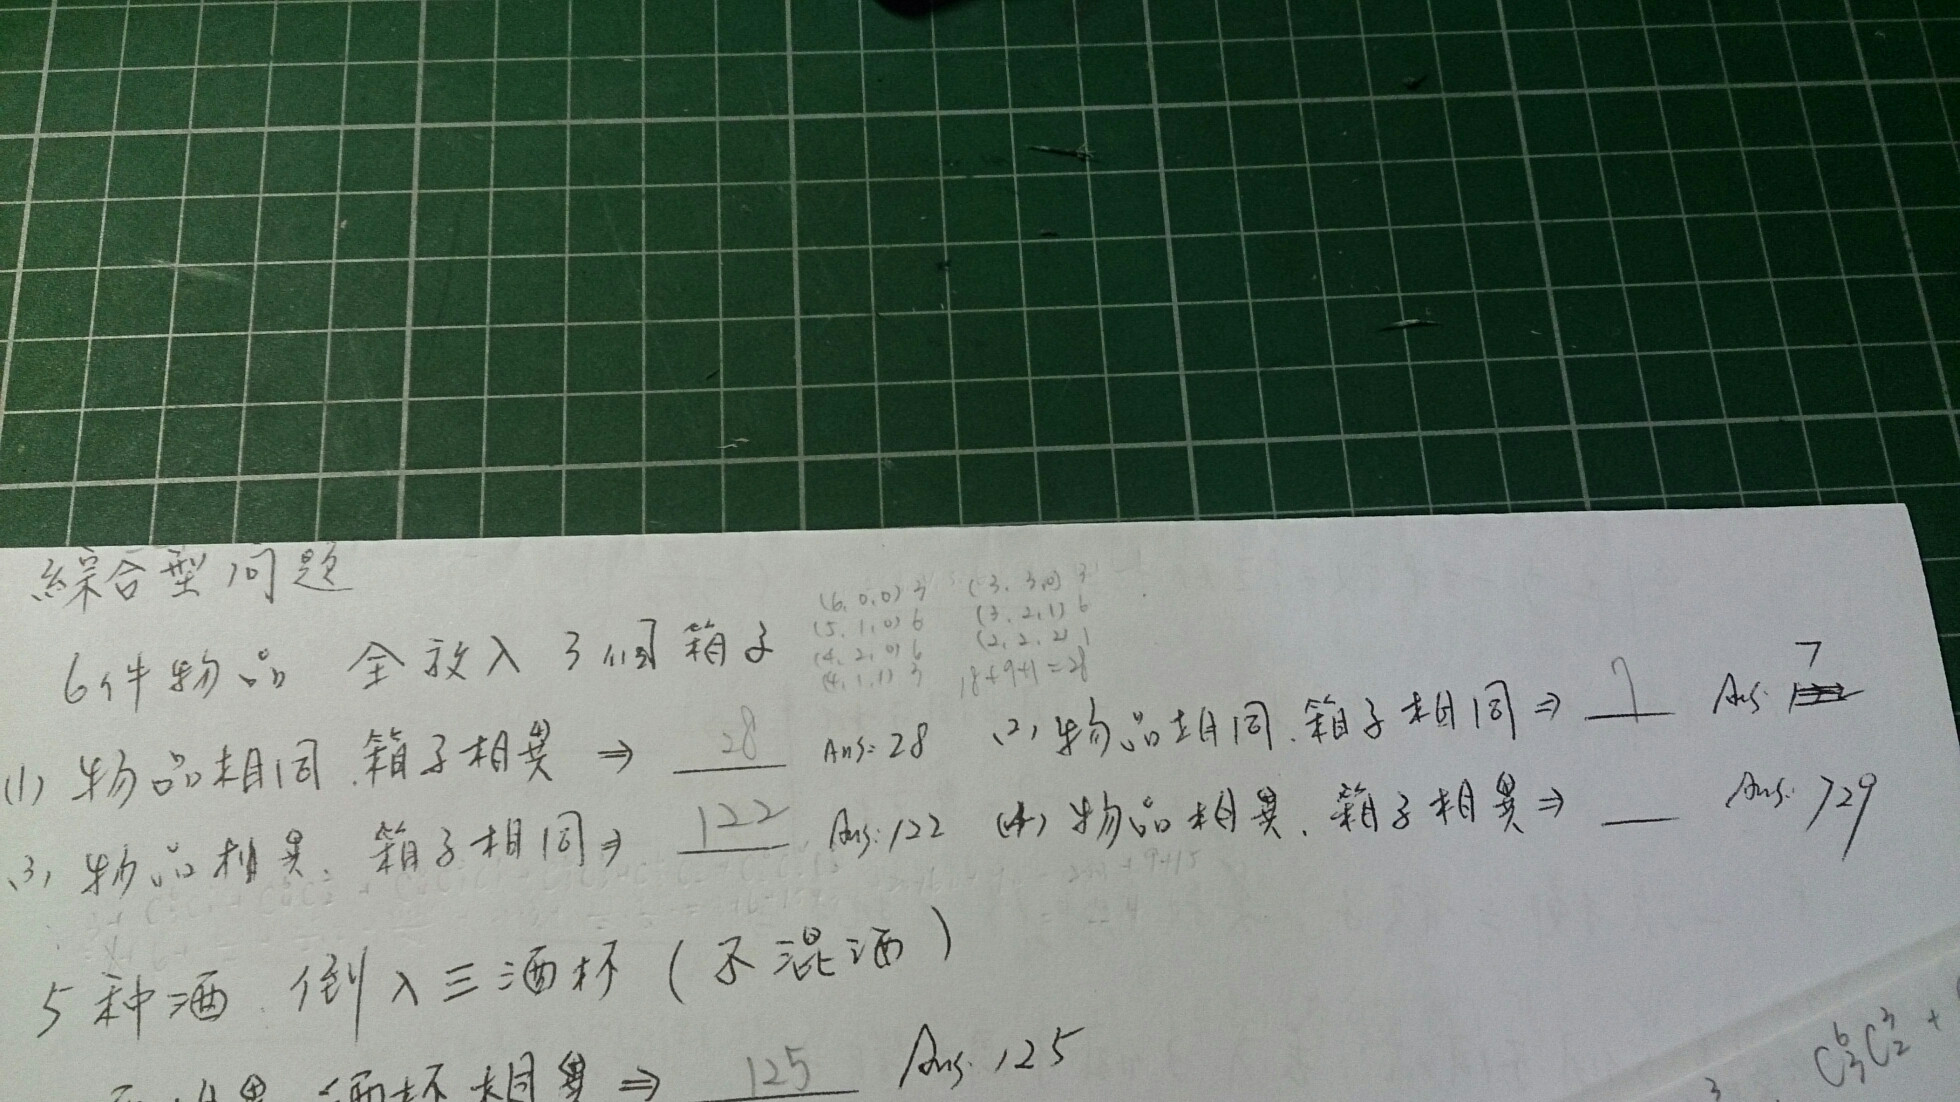 綜合型問題
6件物品 全放入3個箱子
(6,0,0) 3 (3,3,0) 3
(5,1,0) 6 (3,2,1) 6
(4,2,0) 6 (2,2,2) 1
(4,1,1) 3 18+9+1=28
(1) 物品相同.箱子相異 ⇒ 28 Ans: 28 (2) 物品相同.箱子相同 ⇒ 7 Ans: 7
(3) 物品相異.箱子相同 ⇒ 122 Ans: 122 (4) 物品相異.箱子相異 ⇒ __ Ans: 729
5種酒.倒入三酒杯(不混酒)
酒杯相異 ⇒ 125 Ans: 125